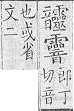 郎丁
切音
也或省
文二